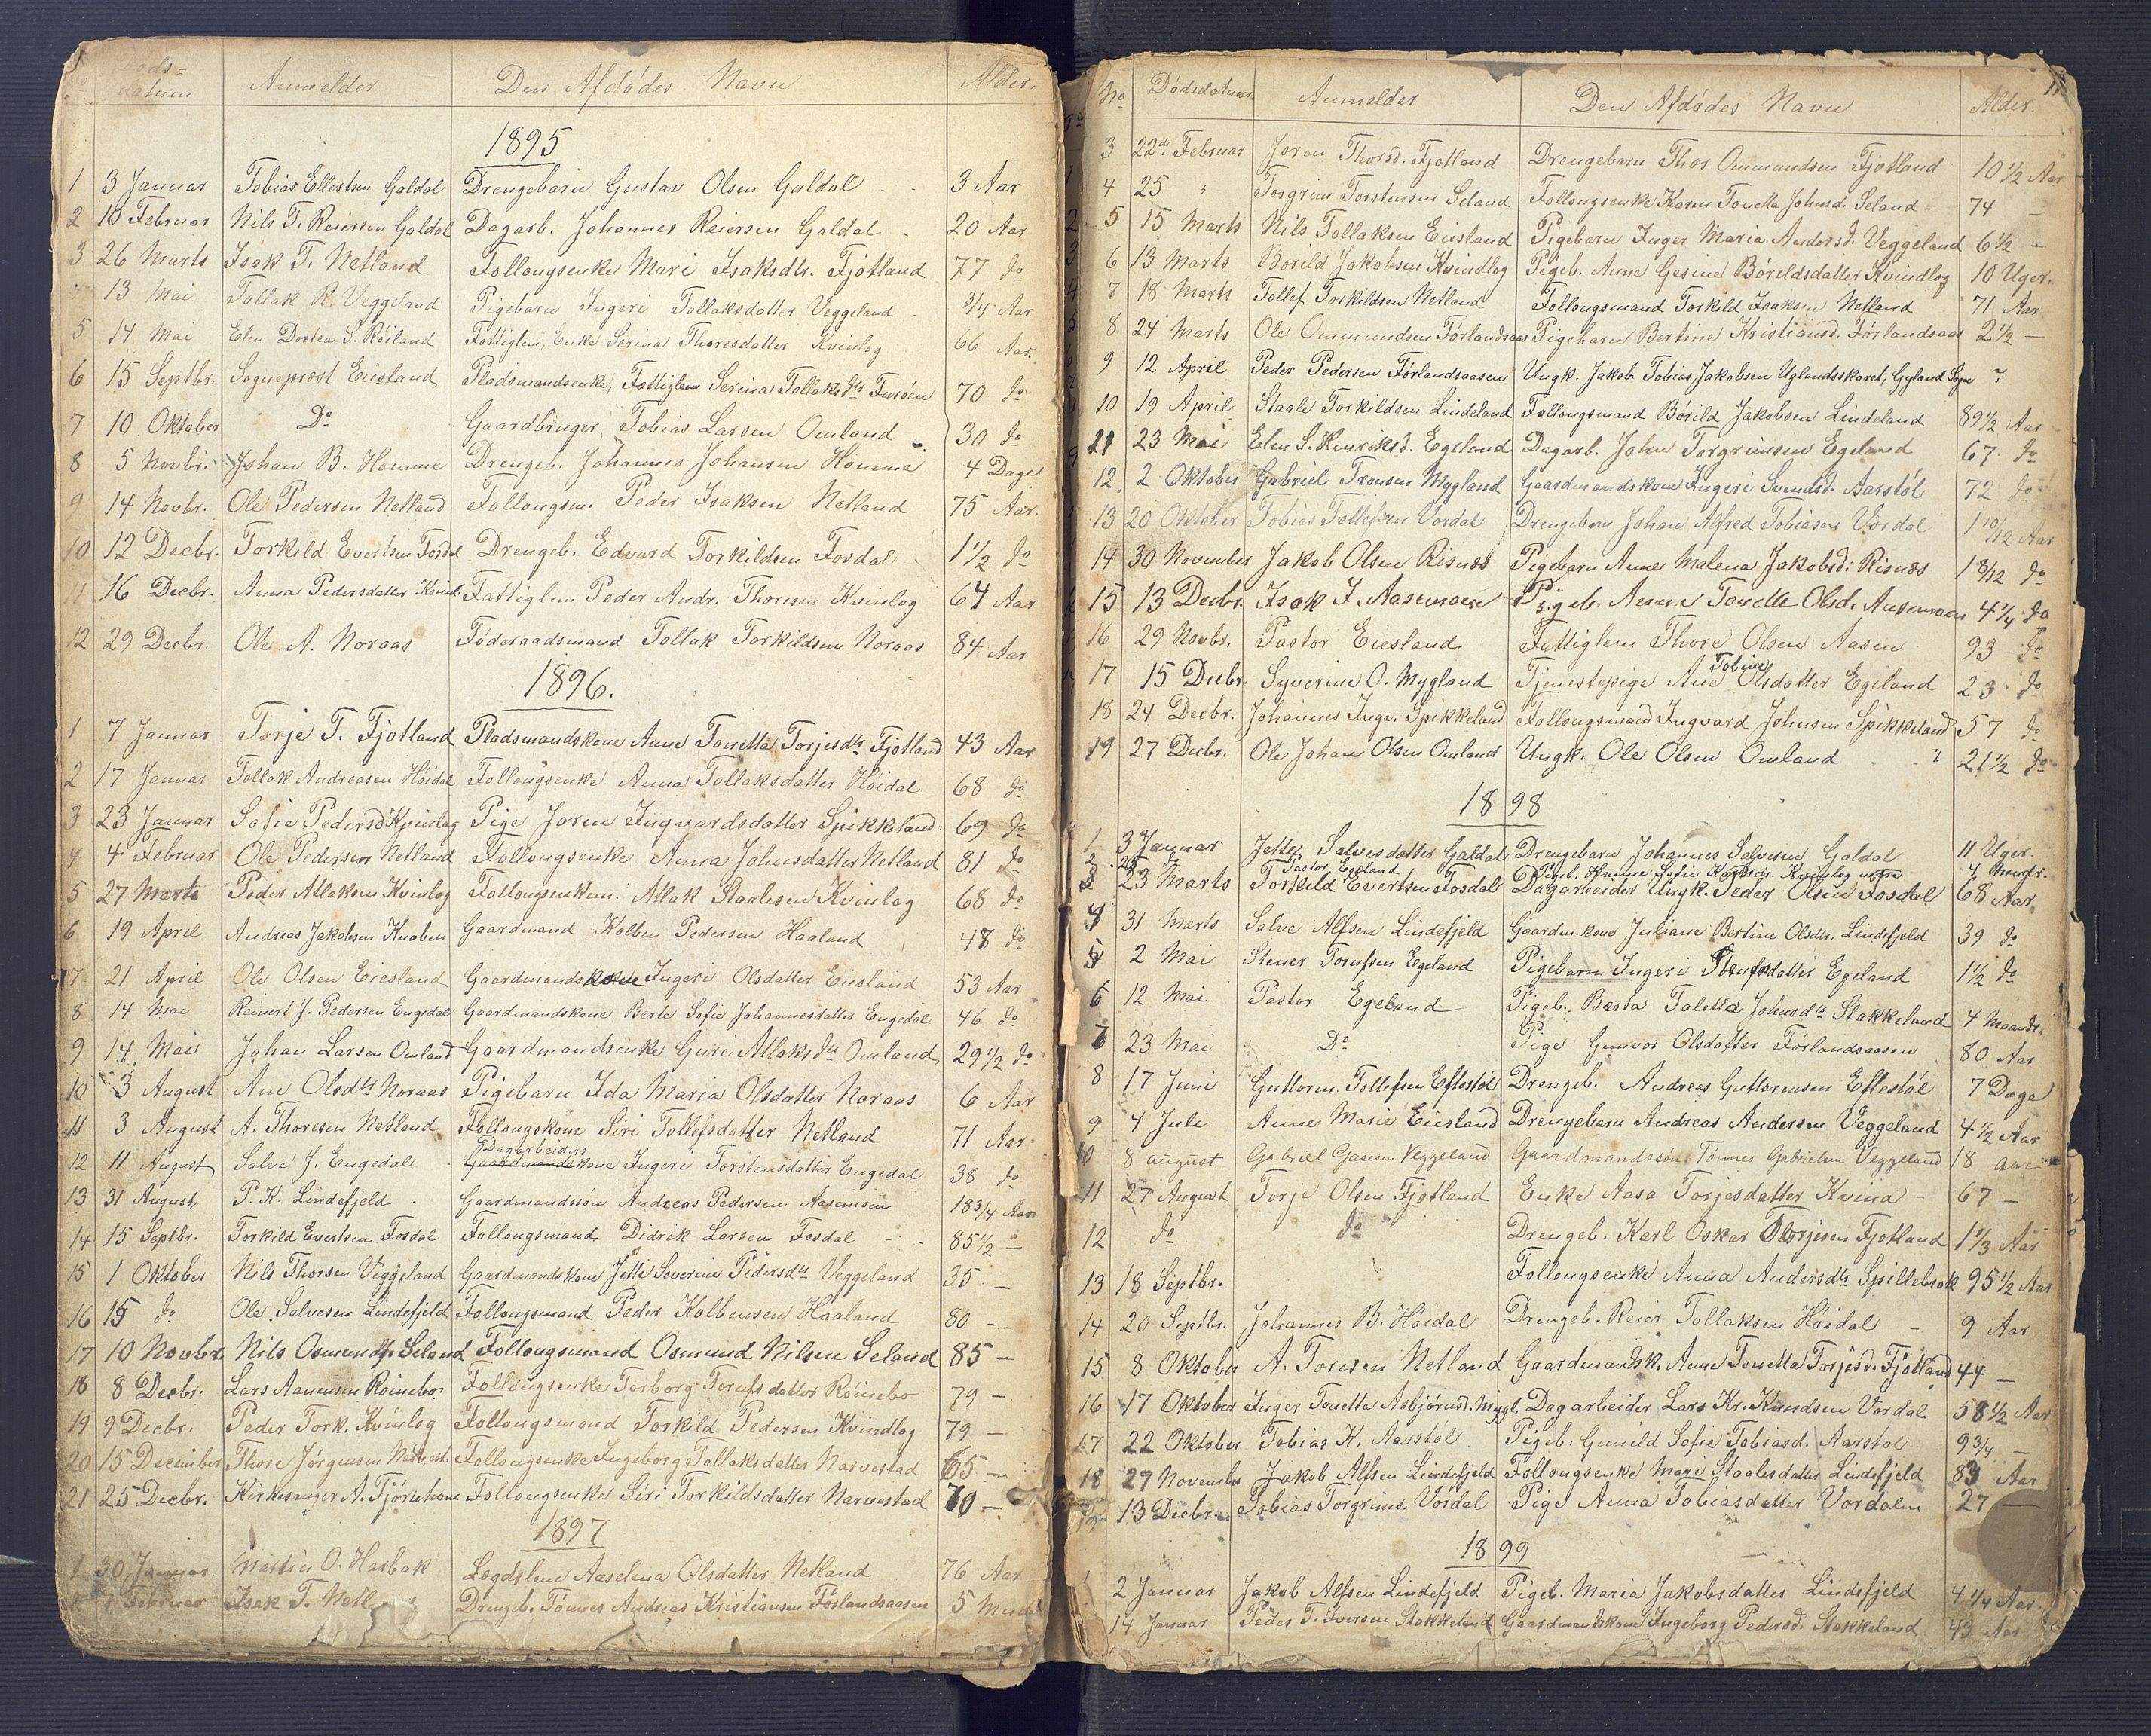 Døds=
datum Anmelder Den Afdødes Navn Alder.
1895
1 3 Januar Tobias Ellertsen Galdal Drengebarn Gustav Olsen Galdal 3 Aar
2 10 Februar Nils T. Reiersen Galdal Dagarb. Johannes Reiersen Galdal 20 Aar
3 26 Marts Isak T. Netland Follougsenke Mari Isaksdtr. Fjotland 77 do
13 Mai Tollak R. Veggeland Pigebarn Ingeri Tollaksdatter Veggeland 3/4 Aar
5 14 Mai Elen Dortea S. Røiland Fattiglem, Enke Serina Thoresdatter Kvinlog 66 Aar.
6 15 Septbr. Sogneprost Eiesland Pladsmandsenke, Fattiglem Serina Tollaksdtr Furøen 70 do
7 10 Oktober Do Gaardbruger Tobias Larsen Omland 30 do
8 5 Novbr. Johan B. Homme Drengeb. Johannes Johansen Homme 4 Dage
9 14 Novbr. Ole Pedersen Netland Follougsm. Peder Isaksen Netland 75 Aar.
10 12 Decbr. Torkild Evertsen Fosdal Drengeb. Edvard Torkildsen Fosdal 1 1/2 do
11 16 Decbr. Anna Pedersdatter Kvinl. Fattiglem Peder Andr. Thoresen Kvinlog 64 Aar
12 29 Decbr. Ole A. Noraas Føderaadsmand Tollak Torkildsen Noraas 84 Aar
1896.
1 7 Januar Torje T. Fjotland Pladsmandskone Anne Tonetta Torjesdtr Fjotland 43 Aar
2 17 Januar Tollak Andreasen Høidal Follougsenke Anna Tollaksdatter Høidal 68 do
3 23 Januar Sofie Pedersd Kvinlog Pige Joren Ingvardsdatter Spikkeland 69 do
4 4 Februar Ole Pedersen Netland Follougsenke Anna Johnsdatter Netland 81 do
5 27 Marts Peder Atlaksen Kvinlog Follougsenkem. Atlak Staalesen Kvinlog 68 do
6 19 April Andreas Jakobsen Knaben Gaardmand Kolben Pedersen Haaland 48 do
7 21 April Ole Olsen Eiesland Gaardmandskone Ingeri Olsdatter Eiesland 53 Aar
8 14 Mai Reinert J. Pedersen Engedal Gaardmandskone Berte Sofie Johannesdatter Engedal 46 do
9 14 Mai Johan Larsen Omland Gaardmandsenke Guri Atlaksdtr Omland 29 1/2 do
10 3 August Ane Olsdtr Noraas Pigebarn Ida Maria Olsdatter Noraas 6 Aar
11 3 August A. Thoresen Netland Follougskone Siri Tollefsdatter Netland 71 Aar.
Dagarbeiders
12 11 August Salve J. Engedal Gaardmandskone Ingeri Torstensdatter Engedal 38 do
13 31 August P. K. Lindefjeld Gaardmandssøn Andreas Pedersen Aasemoen 18 3/4 Aar
14 15 Septbr. Torkild Evertsen Fosdal Follougsmand Didrik Larsen Fosdal 85 1/2 —
15 1 Oktober Nils Thorsen Veggeland Gaardmandskone Jette Severine Pedersdtr Veggeland 35 —
16 15 do Ole Salvesen Lindefjeld Follougsmand Peder Kolbensen Haaland 80 —
17 10 Novbr Nils Osmunds. Seland Follougsmand Osmund Nilsen Seland 85 —
18 8 Decbr. Lars Aanensen Røinebo Follougsenke Torborg Torufsdatter Røinebo 79 —
19 9 Decbr. Peder Tork. Kvinlog Follougsmand Torkild Pedersen Kvindlog 79 —
20 15 December Thore Jørgensen Narvest. Follougsenke Ingeborg Tollaksdatter Narvestad 65 —
21 25 Decbr. Kirkesanger A. Tjørnhom Follougsenke Siri Torkildsdatter Narvestad 70 —
1897
1 30 Januar Martin O. Harbak Lægdslem Aaselena Olsdatter Netland 76 Aar
Februar Isak T. Netl Drengeb. Tønnes Andreas Kristiansen Førlandsaasen 5 Mnd
No Dødsdatum Anmelder Den Afdødes Navn Alder.
3 22de Februar Joren Thorsd. Fjotland Drengebarn Thor Ommundsen Fjotland 10 1/2 Aar
4 25 " Torgrim Torstensen Seland Follougsenke Karen Tonetta Johnsd. Seland 74 —
5 15 Marts Nils Tollaksen Eiesland Pigebarn Inger Maria Andersd. Veggeland 6 1/2 —
6 13 Marts Borild Jakobsen Kvindlog Pigeb. Anne Gesine Bórildsdatter Kvindlog 10 Uger.
7 18 Marts Tollef Torkildsen Netland Follougsmand Torkild Isaksen Netland 71 Aar
8 24 Marts Ole Ommundsen Førlandsaas Pigebarn Bertine Kristiansd. Førlandsaas 2 1/2 —
9 12 April Peder Pedersen Førlandsaasen Ungk. Jakob Tobias Jakobsen Uglandsskaret, Gyland Sogn ?
10 19 April Staale Torkildsen Lindeland Follougsmand Børild Jakobsen Lindeland 89 1/2 Aar
11 23 Mai Elen S. Henriksd. Egeland Dagarb. John Torgrimsen Egeland 67 do
12 2 Oktober Gabriel Tronsen Mygland Gaardmandskone Ingeri Svendsd. Aarstøl 72 do
13 20 Oktober Tobias Tollefsen Vordal Drengebarn Johan Alfred Tobiasen Vordal 1 10/12 Aar
14 30 November Jakob Olsen Risnæs Pigebarn Anne Malena Jakobsd. Risnæs 1 8/12 do
15 13 Decbr. Isak I. Aasemoen Pigeb. Anne Tonette Olsd. Aasemoen 4 1/4 do
16 29 Novbr. Pastor Eiesland Fattiglem Thore Olsen Aasen 93 do
Tobine
17 15 Decbr. Syverine O. Mygland Tjenestepige Ane Olsdatter Egeland 23 do
18 24 Decbr. Johannes Ingv. Spikkeland Follougsmand Ingvard Johnsen Spikkeland 57 do
19 27 Decbr. Ole Johan Olsen Omland Ungk. Ole Olsen Omland 21 1/2 do
1898
1 3 Januar Jette Salvesdatter Galdal Drengebarn Johannes Salvesen Galdal 11 Uger.
2 25 do Pastor Egeland Pigeb. Hanne Sofie Kvinlog
3 23 Marts Torkild Evertsen Fosdal Dagarbeider Ungk. Peder Olsen Fosdal 68 Aar
4 31 Marts Salve Alfsen Lindefjeld Gaardm.kone Juliane Bertine Olsdtr. Lindefjeld 39 do
5 2 Mai Stener Torufsen Egeland Pigebarn Ingeri Egeland 1 1/2 do
6 12 Mai Pastor Egeland Pigeb. Berta Taletta Johnsdtr Stakkeland 4 Maand.
7 23 Mai Do Pige Gunvor Olsdatter Førlandsaasen 80 Aar
8 17 Juni Guttorm Tollefsen Eftestøl Drengeb. Andreas Guttormsen Eftestøl 7 Dage
9 4 Juli Anne Marie Eiesland Drengebarn Andreas Andersen Veggeland 4 1/2 Aar
10 8 august Gabriel Gasesen Veggeland Gaardmandssøn Tønnes Gabrielsen Veggeland 18 aar
11 27 August Torje Olsen Fjotland Enke Aasa Torjesdatter Kvina - 67 —
12 do do Drengeb. Karl Oskar Torjesen Fjotland 1 1/3 Aar
13 18 Septbr. Follougsenke Anna Andersdtr Spillebrok 95 1/2 Aar
14 20 Septbr. Johannes B. Høidal Drengeb. Reier Tollaksen Høidal 9 Aar
15 8 Oktober A. Toresen Netland Gaardmandsk. Anne Tonetta Torjesd. Fjotland 44 —
16 17 Oktober Inger Tonetta Asbjørnsd. Mygl. Dagarbeider Lars Kr. Knudsen Vordal 58 1/2 Aar
17 22 Oktober Tobias K. Aarstøl Pigeb. Gunild Sofie Tobiasd. Aarstøl 9 3/4 —
18 27 November Jakob Alfsen Lindefjeld Follougsenke Mari Staalesdatter Lindefjeld 83 Aar
19 13 Decbr. Tobias Torgrims. Vordal Pige Anna Tobiasdatter Vordalen 27 —
1899
2 Januar Jakob Alfsen Lindefjeld Pigeb. Maria Jakobsdatter Lindefjeld 4 1/4 Aar.
14 Januar Peder T. Iversen Stakkeland Gaardmandskone Ingeborg Pedersd. Stakkeland 43 Aar